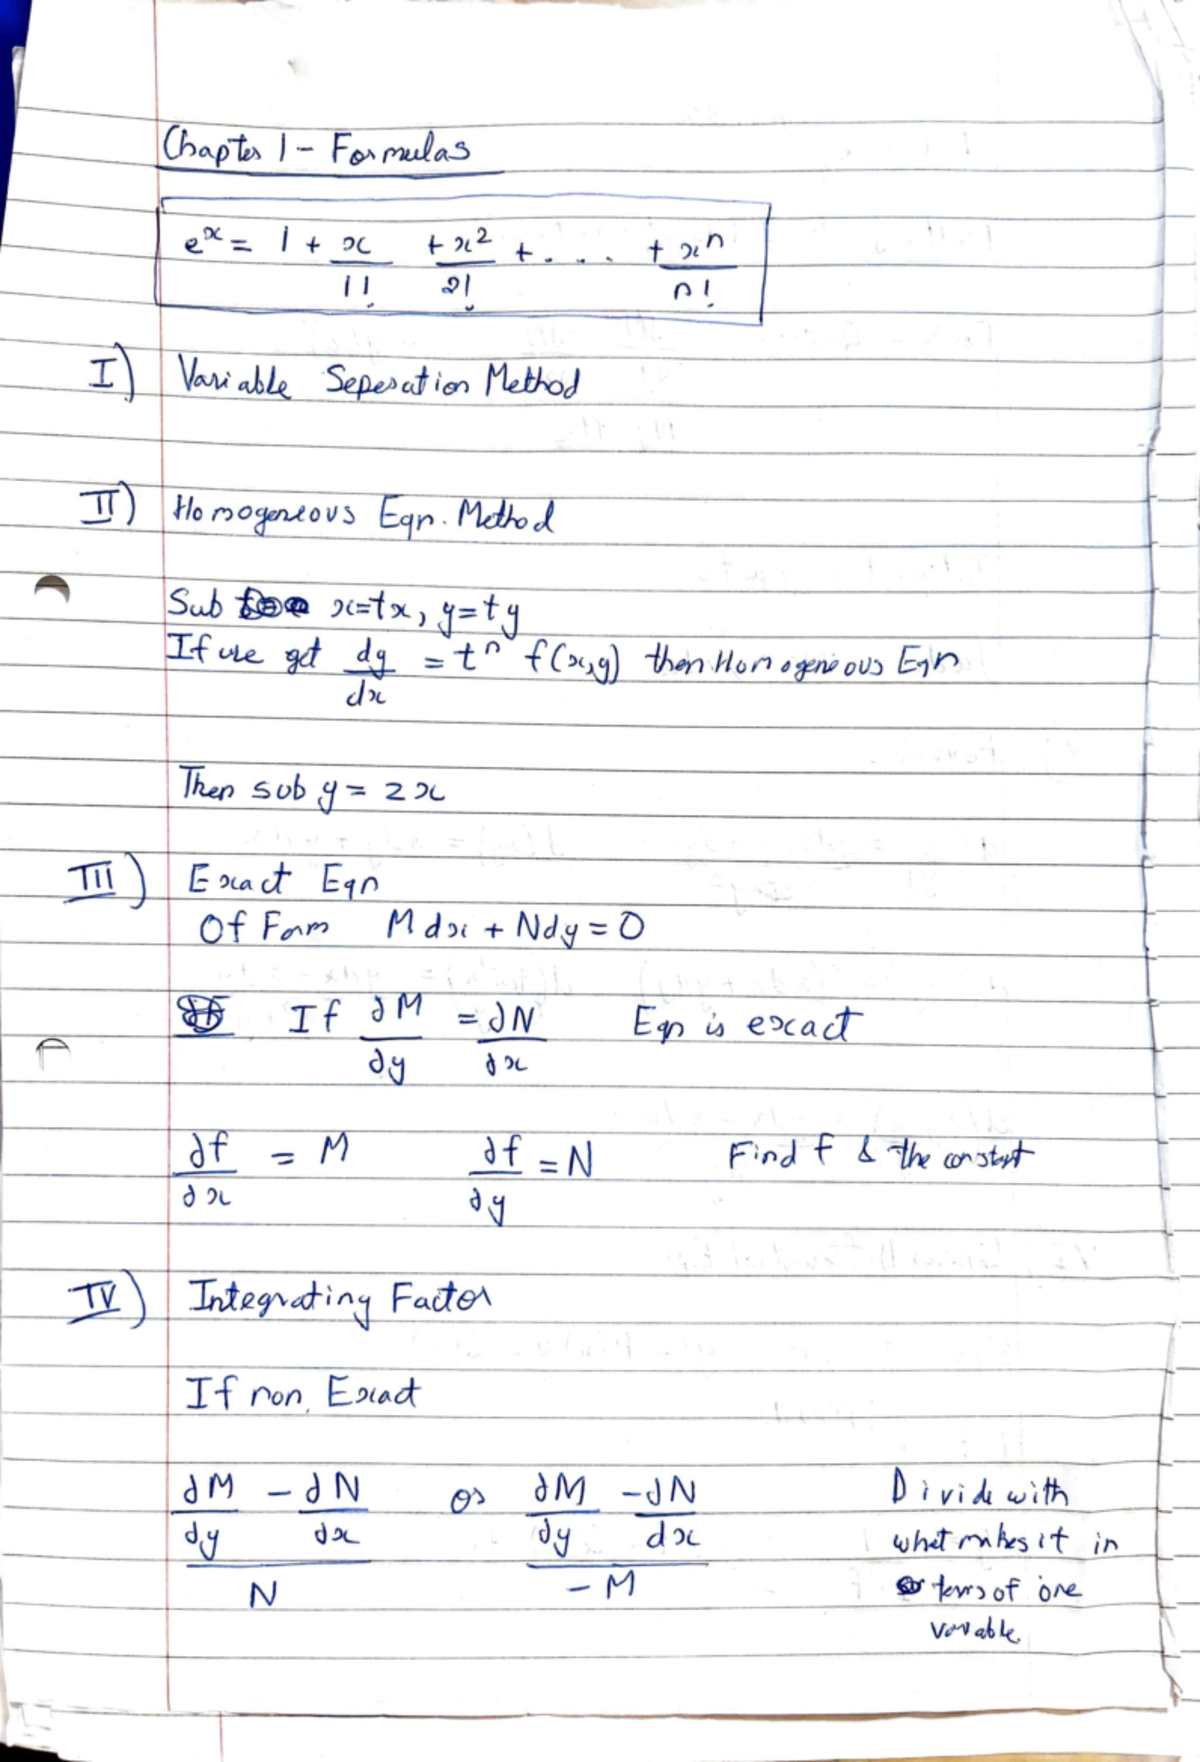 Chapter 1 - Formulas
e^x = 1 + x/1! + x²/2! + . . . . + x^n/n!
I) Variable Seperation Method
II) Homogeneous Eqn. Method
Sub x=tx, y=ty
If we get dy/dx = t^n f(x,y) then Homogeneous Eqn
Then sub y = zx
III) Exact Eqn
Of Form Mdx + Ndy = 0
If ∂M/∂y = ∂N/∂x Eqn is exact
∂f/∂x = M ∂f/∂y = N Find f & the constant
IV) Integrating Factor
If non Exact
(∂M/∂y - ∂N/∂x)/N or (∂M/∂y - ∂N/∂x)/-M Divide with
what makes it in
terms of one
variable.